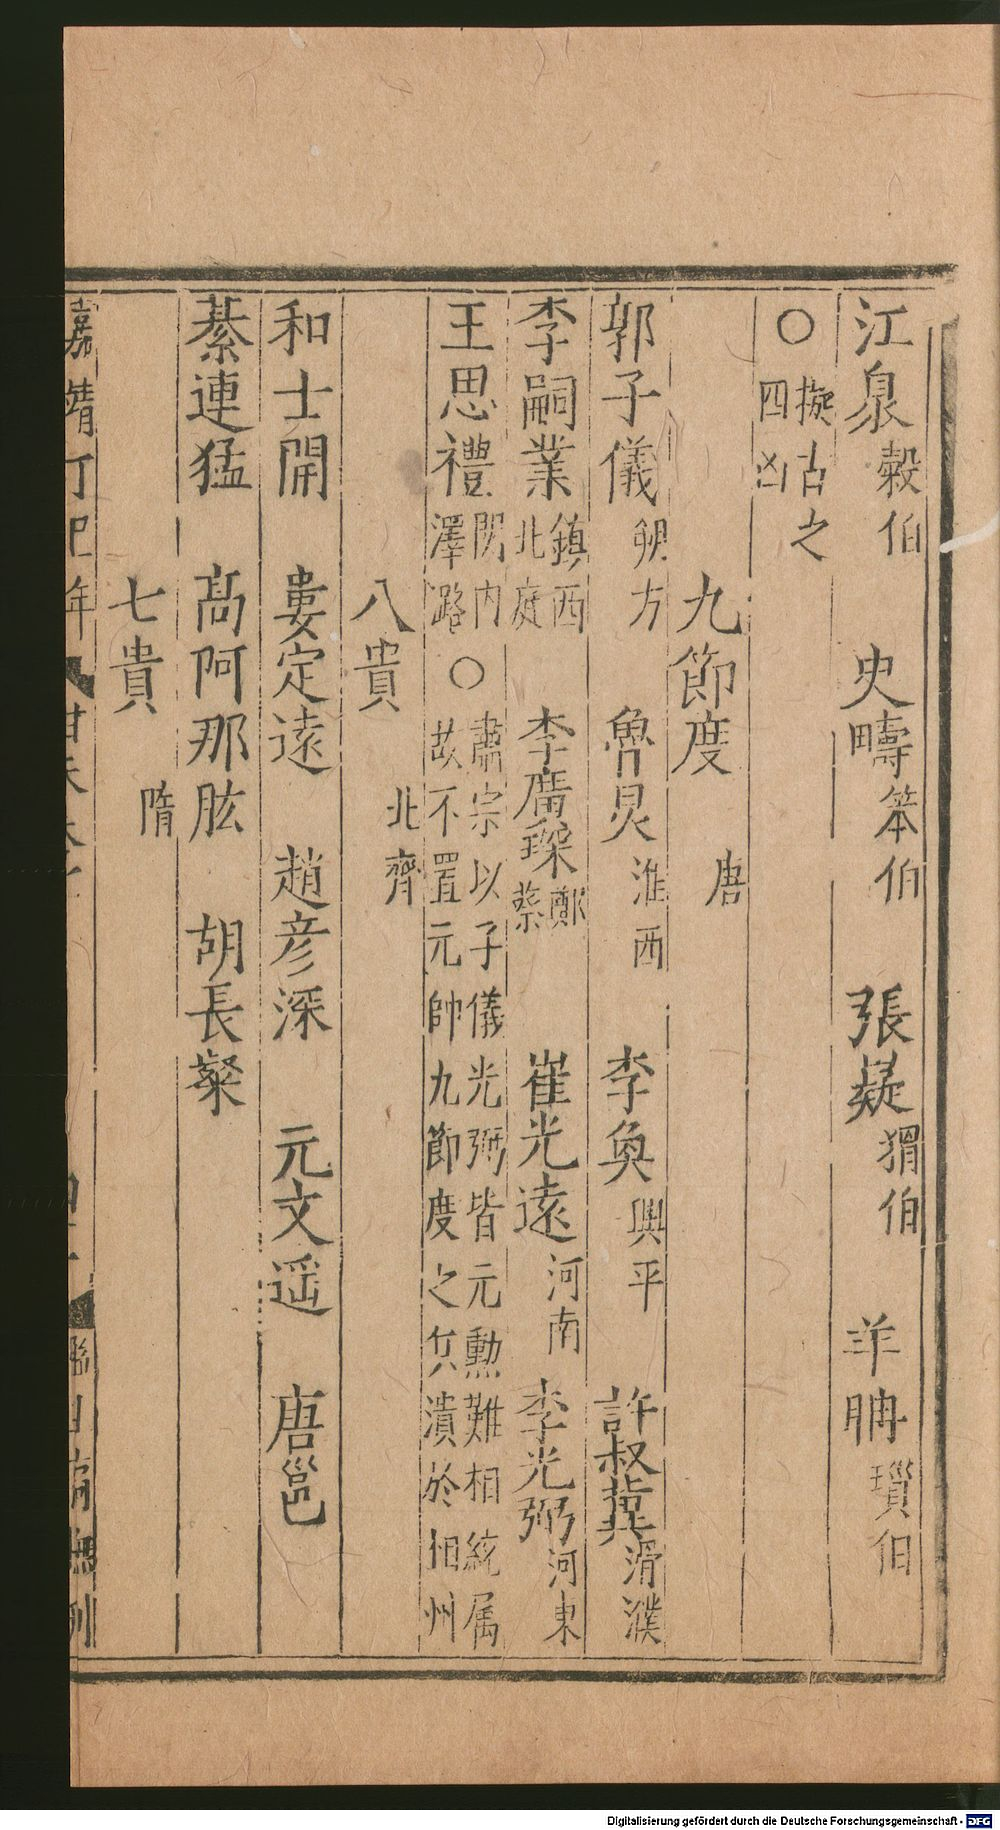 江泉穀伯　史疇笨伯　張嶷猾伯　羊聃瑣伯
○擬古之四凶
九節度　唐
郭子儀朔方　魯炅淮西　李奐興平　許叔冀滑濮
李嗣業鎮西北庭　李廣琛鄭蔡　崔光遠河南　李光弼河東
王思禮関内澤潞○肅宗以子儀光弼皆元勳難相統属故不置元帥九節度之兵潰於相州
八貴　北齊
和士開　婁定遠　趙彦深　元文遥　唐邕
綦連猛　髙阿那肱　胡長粲
七貴　隋
嘉靖丁巳年
Digitalisierung gefördert durch die Deutsche Forschungsgemeinschaft - DFG